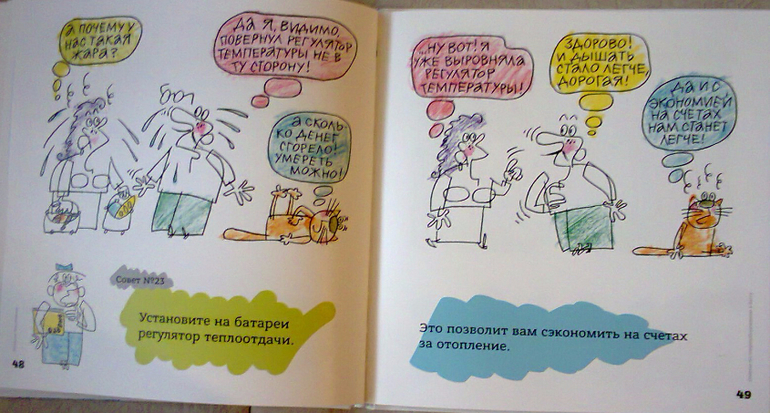 А ПОЧЕМУ У
НАС ТАКАЯ
ЖАРА?
ДА Я, ВИДИМО,
ПОВЕРНУЛ РЕГУЛЯТОР
ТЕМПЕРАТУРЫ НЕ В
ТУ СТОРОНУ!
А СКОЛЬ
КО ДЕНЕГ
СГОРЕЛО!
УМЕРЕТЬ
МОЖНО!
Совет №23
Установите на батареи
регулятор теплоотдачи.
48
...НУ ВОТ! Я
УЖЕ ВЫРОВНЯЛА
РЕГУЛЯТОР
ТЕМПЕРАТУРЫ!
ЗДОРОВО!
И ДЫШАТЬ
СТАЛО ЛЕГЧЕ,
ДОРОГАЯ!
ДА И С
ЭКОНОМИЕЙ
НА СЧЕТАХ
НАМ СТАНЕТ
ЛЕГЧЕ!
Это позволит вам сэкономить на счетах
за отопление.
49